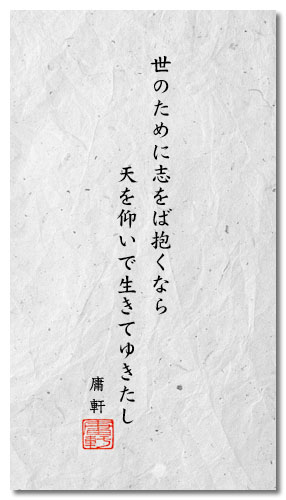 世のために志をば抱くなら
天を仰いで生きてゆきたし
庸軒